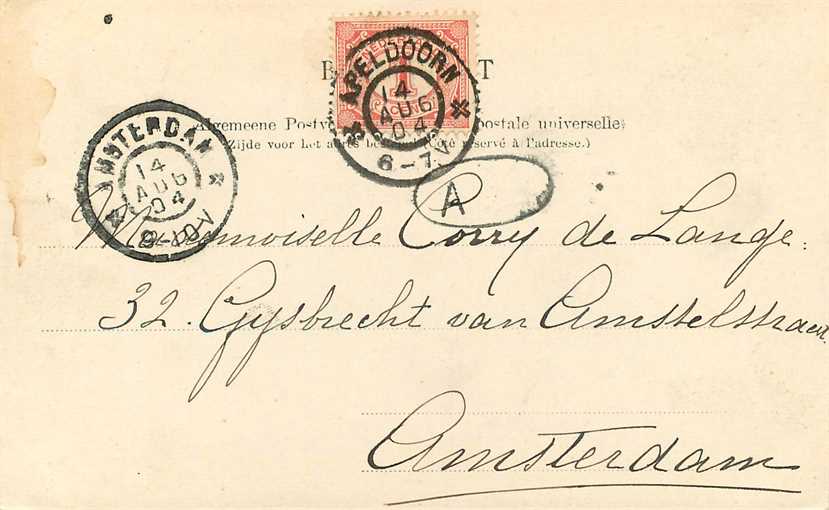 NEDERLAND
1
CENT
APELDOORN
14
AUG
04
6-7V
B T
Algemeene Postv postale universelle.
(Zijde voor het adres be (Côté réservé à l'adresse.)
AMSTERDAM
14
AUG
04
9-10V
A
Mademoiselle Corry de Lange.
32. Gysbrecht van Amstelstraat.
Amsterdam